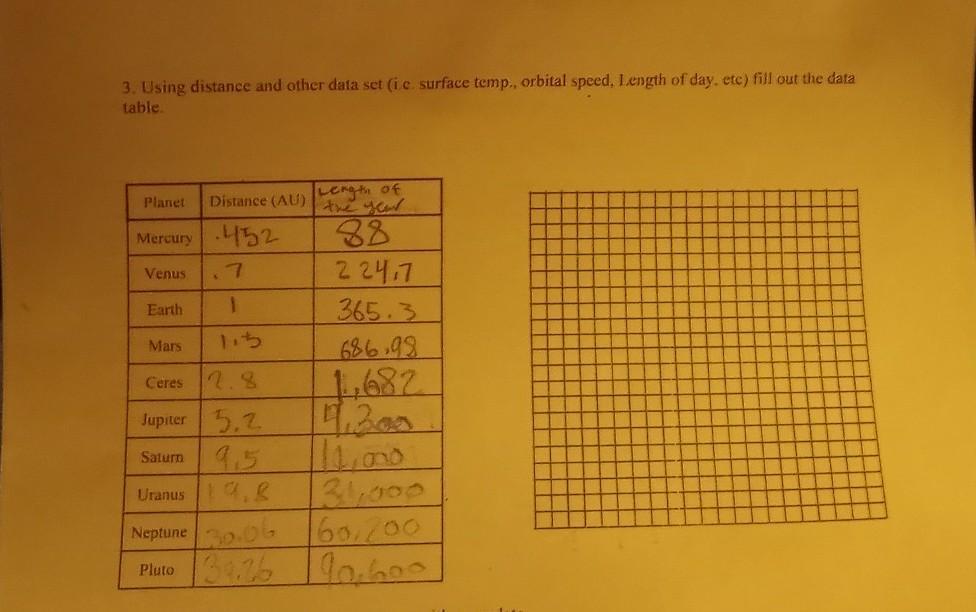 3. Using distance and other data set (i.e. surface temp., orbital speed, Length of day, etc) fill out the data
table.
Planet Distance (AU) Length of
the year
Mercury .452 88
Venus .7 224.7
Earth 1 365.3
Mars 1.5 686.98
Ceres 2.8 1,682
Jupiter 5.2 4,300
Saturn 9.5 11,000
Uranus 19.8 31,000
Neptune 30.06 60,200
Pluto 39.26 90,600